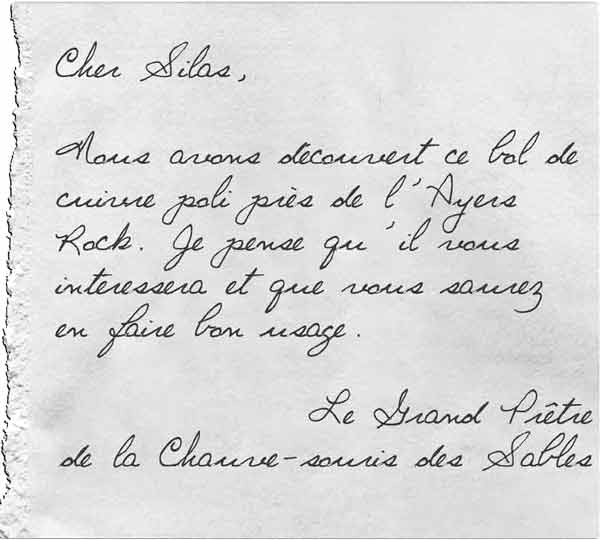 Cher Silas,
Nous avons decouvert ce bol de
cuivre poli près de l'Ayers
Rock. Je pense qu'il vous
interessera et que vous saurez
en faire bon usage.
Le Grand Prêtre
de la Chauve-souris des Sables